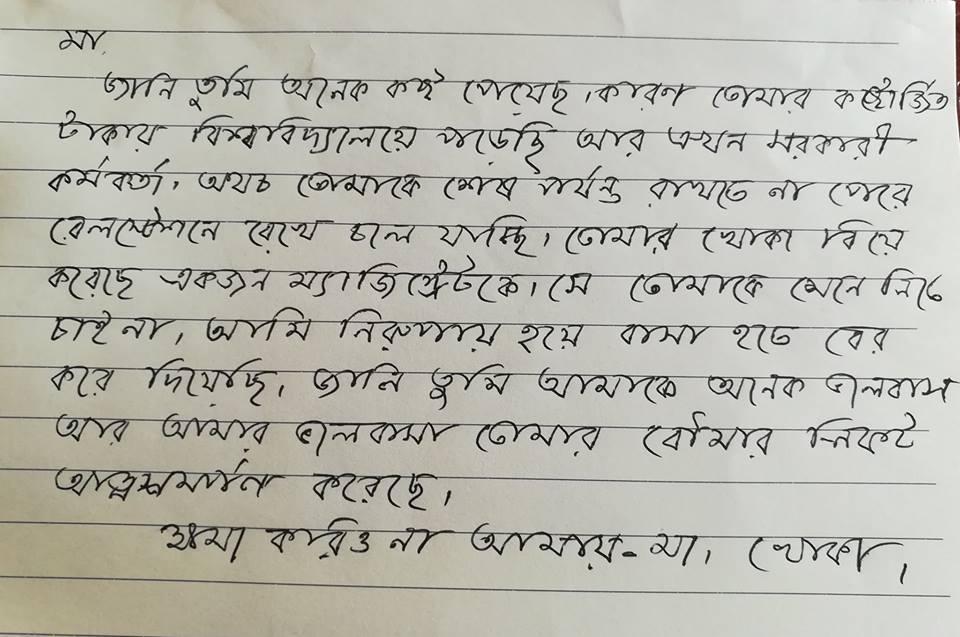 মা,
জানি তুমি অনেক কষ্ট পেয়েছ, কারণ তোমার কষ্টার্জিত
টাকায় বিশ্ববিদ্যালয়ে পড়েছি আর এখন সরকারী
কর্মকর্তা, অথচ তোমাকে শেষ পর্যন্ত রাখতে না পেরে
রেলস্টেশনে রেখে চলে যাচ্ছি, তোমার খোকা বিয়ে
করেছে একজন ম্যাজিস্ট্রেটকে, সে তোমাকে মেনে নিতে
চাই না, আমি নিরুপায় হয়ে বাসা হতে বের
করে দিয়েছি, জানি তুমি আমাকে অনেক ভালবাস
আর আমার ভালবাসা তোমার বৌমার নিকট
আত্মসমার্পন করেছে,
ক্ষমা করিও না আমায়-মা, খোকা,